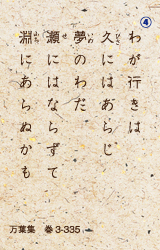 ④
わが行きは
久にはあらじ
夢のわだ
瀬にはならずて
淵にあらぬかも
万葉集 巻3-335